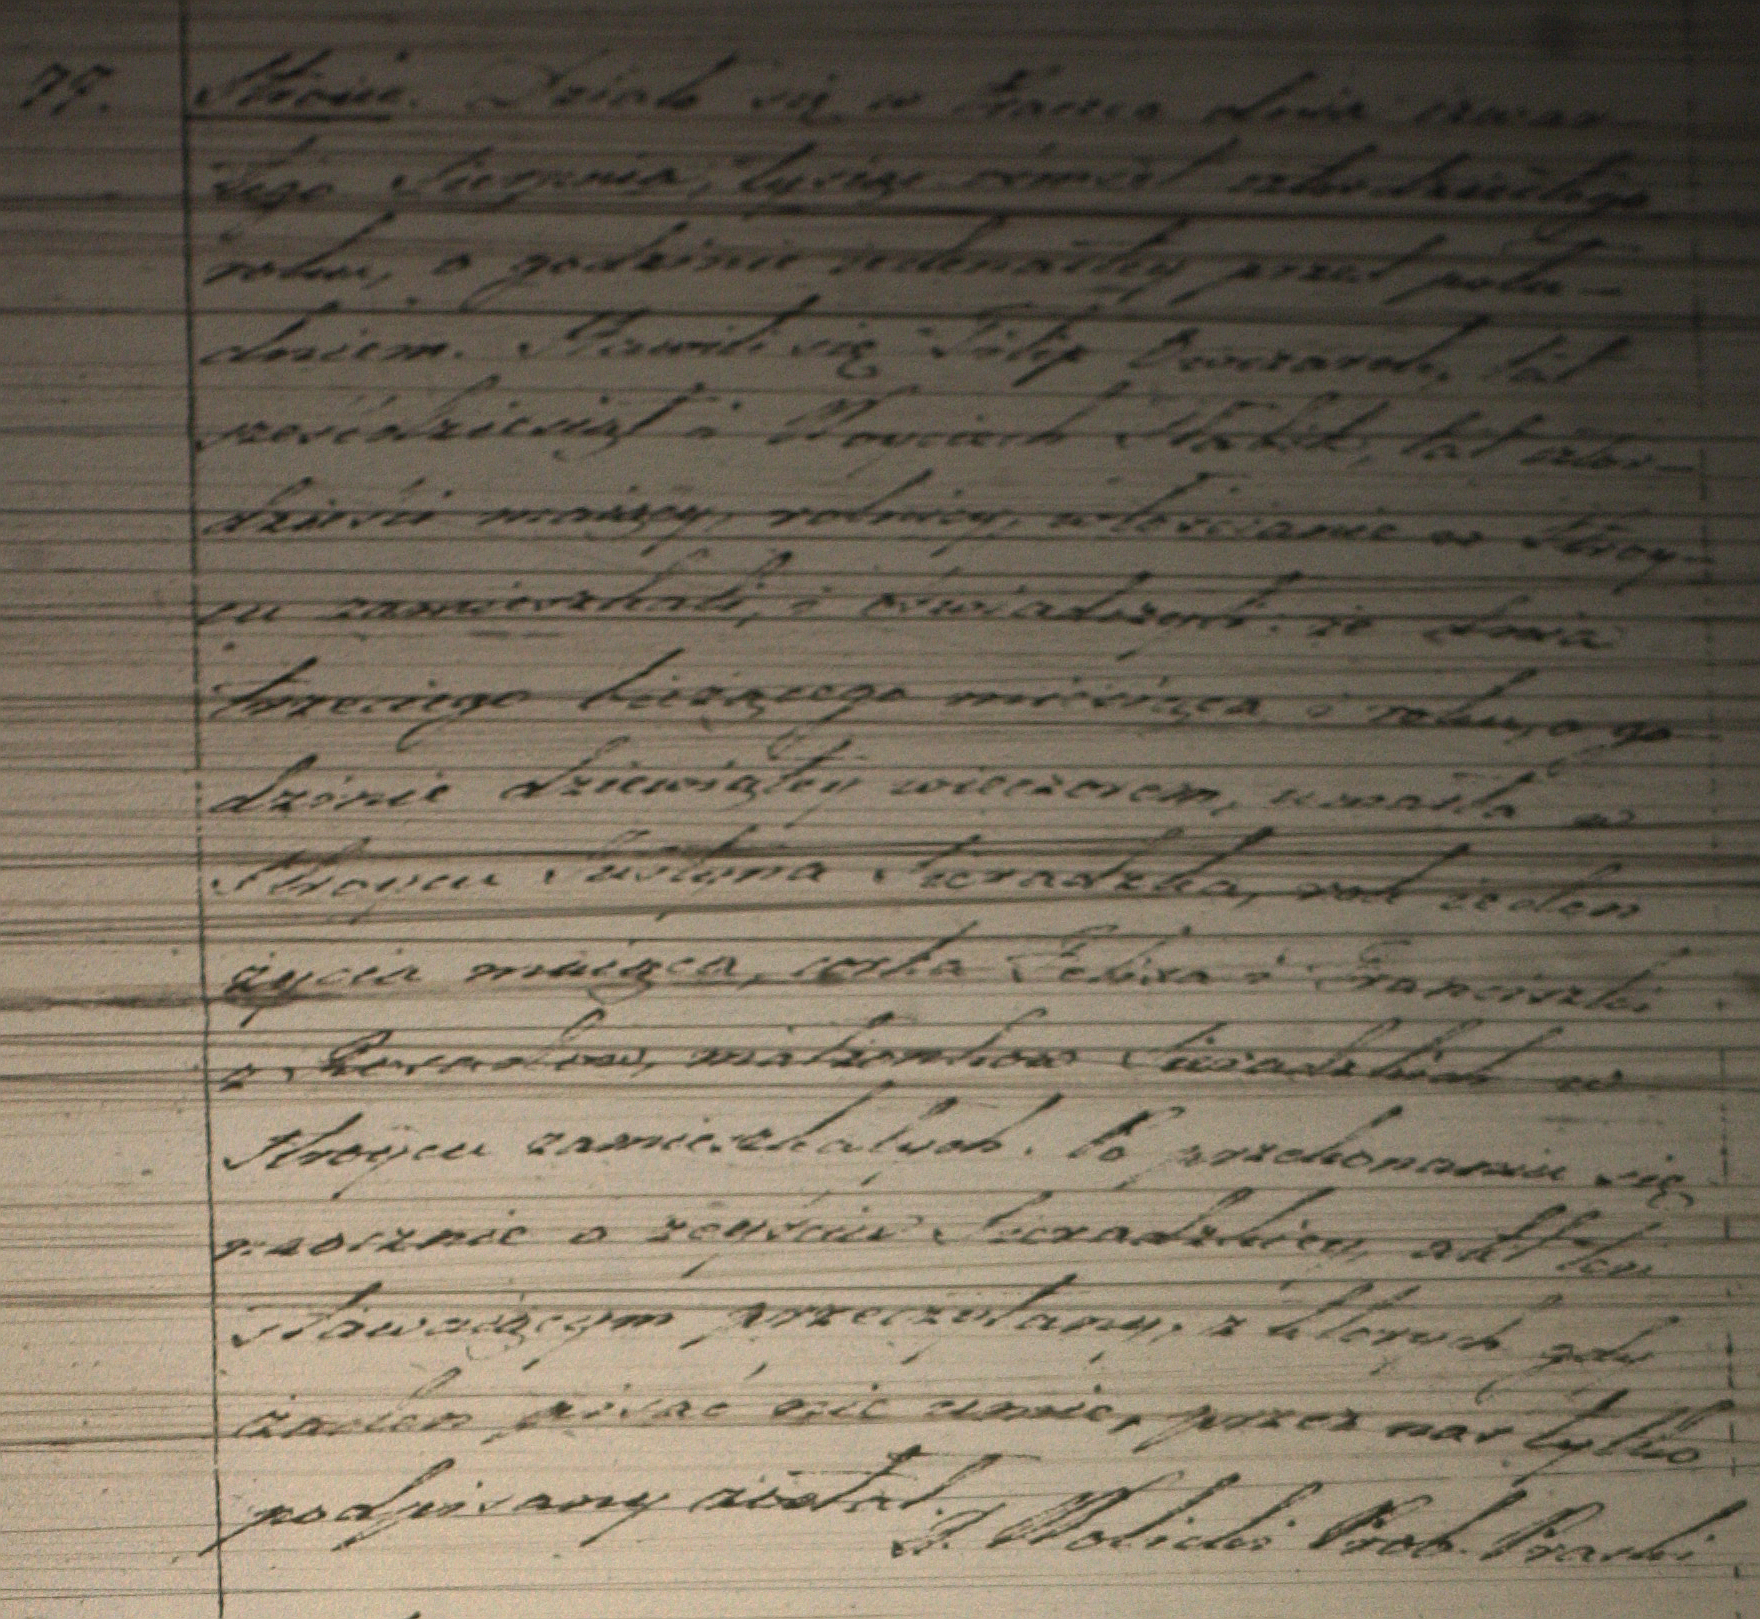 77.
Stroiec. Działo się w Praszce dnia czwar
tego Sierpnia, tysiąc ośmset czterdziestego
roku, o godzinie iedenastey przed połu-
dniem. Stawili się Filip Owczarek, lat
sześćdziesiąt i Woyciech lat czter-
dzieści maiący, rolnicy, włościanie w Stroy-
cu zamieszkali, i oświadczyli: że dnia
trzeciego bieżącego miesiąca i roku, o go
dzinie dziewiątey wieczorem, umarła w
Stroycu Justyna Sieradzka, rok ieden
życia maiąca, córka Felixa i Franciszki
z małżonków Sieradzkich w
Stroycu zamieszkałych. Po przekonaniu się
naocznie o zeyściu Sieradzkiey, akt ten
stawaiącym przeczytany, z których gdy
żaden pisać nie umie, przez nas tylko
podpisany został.
Wolicki Prob. Praszki